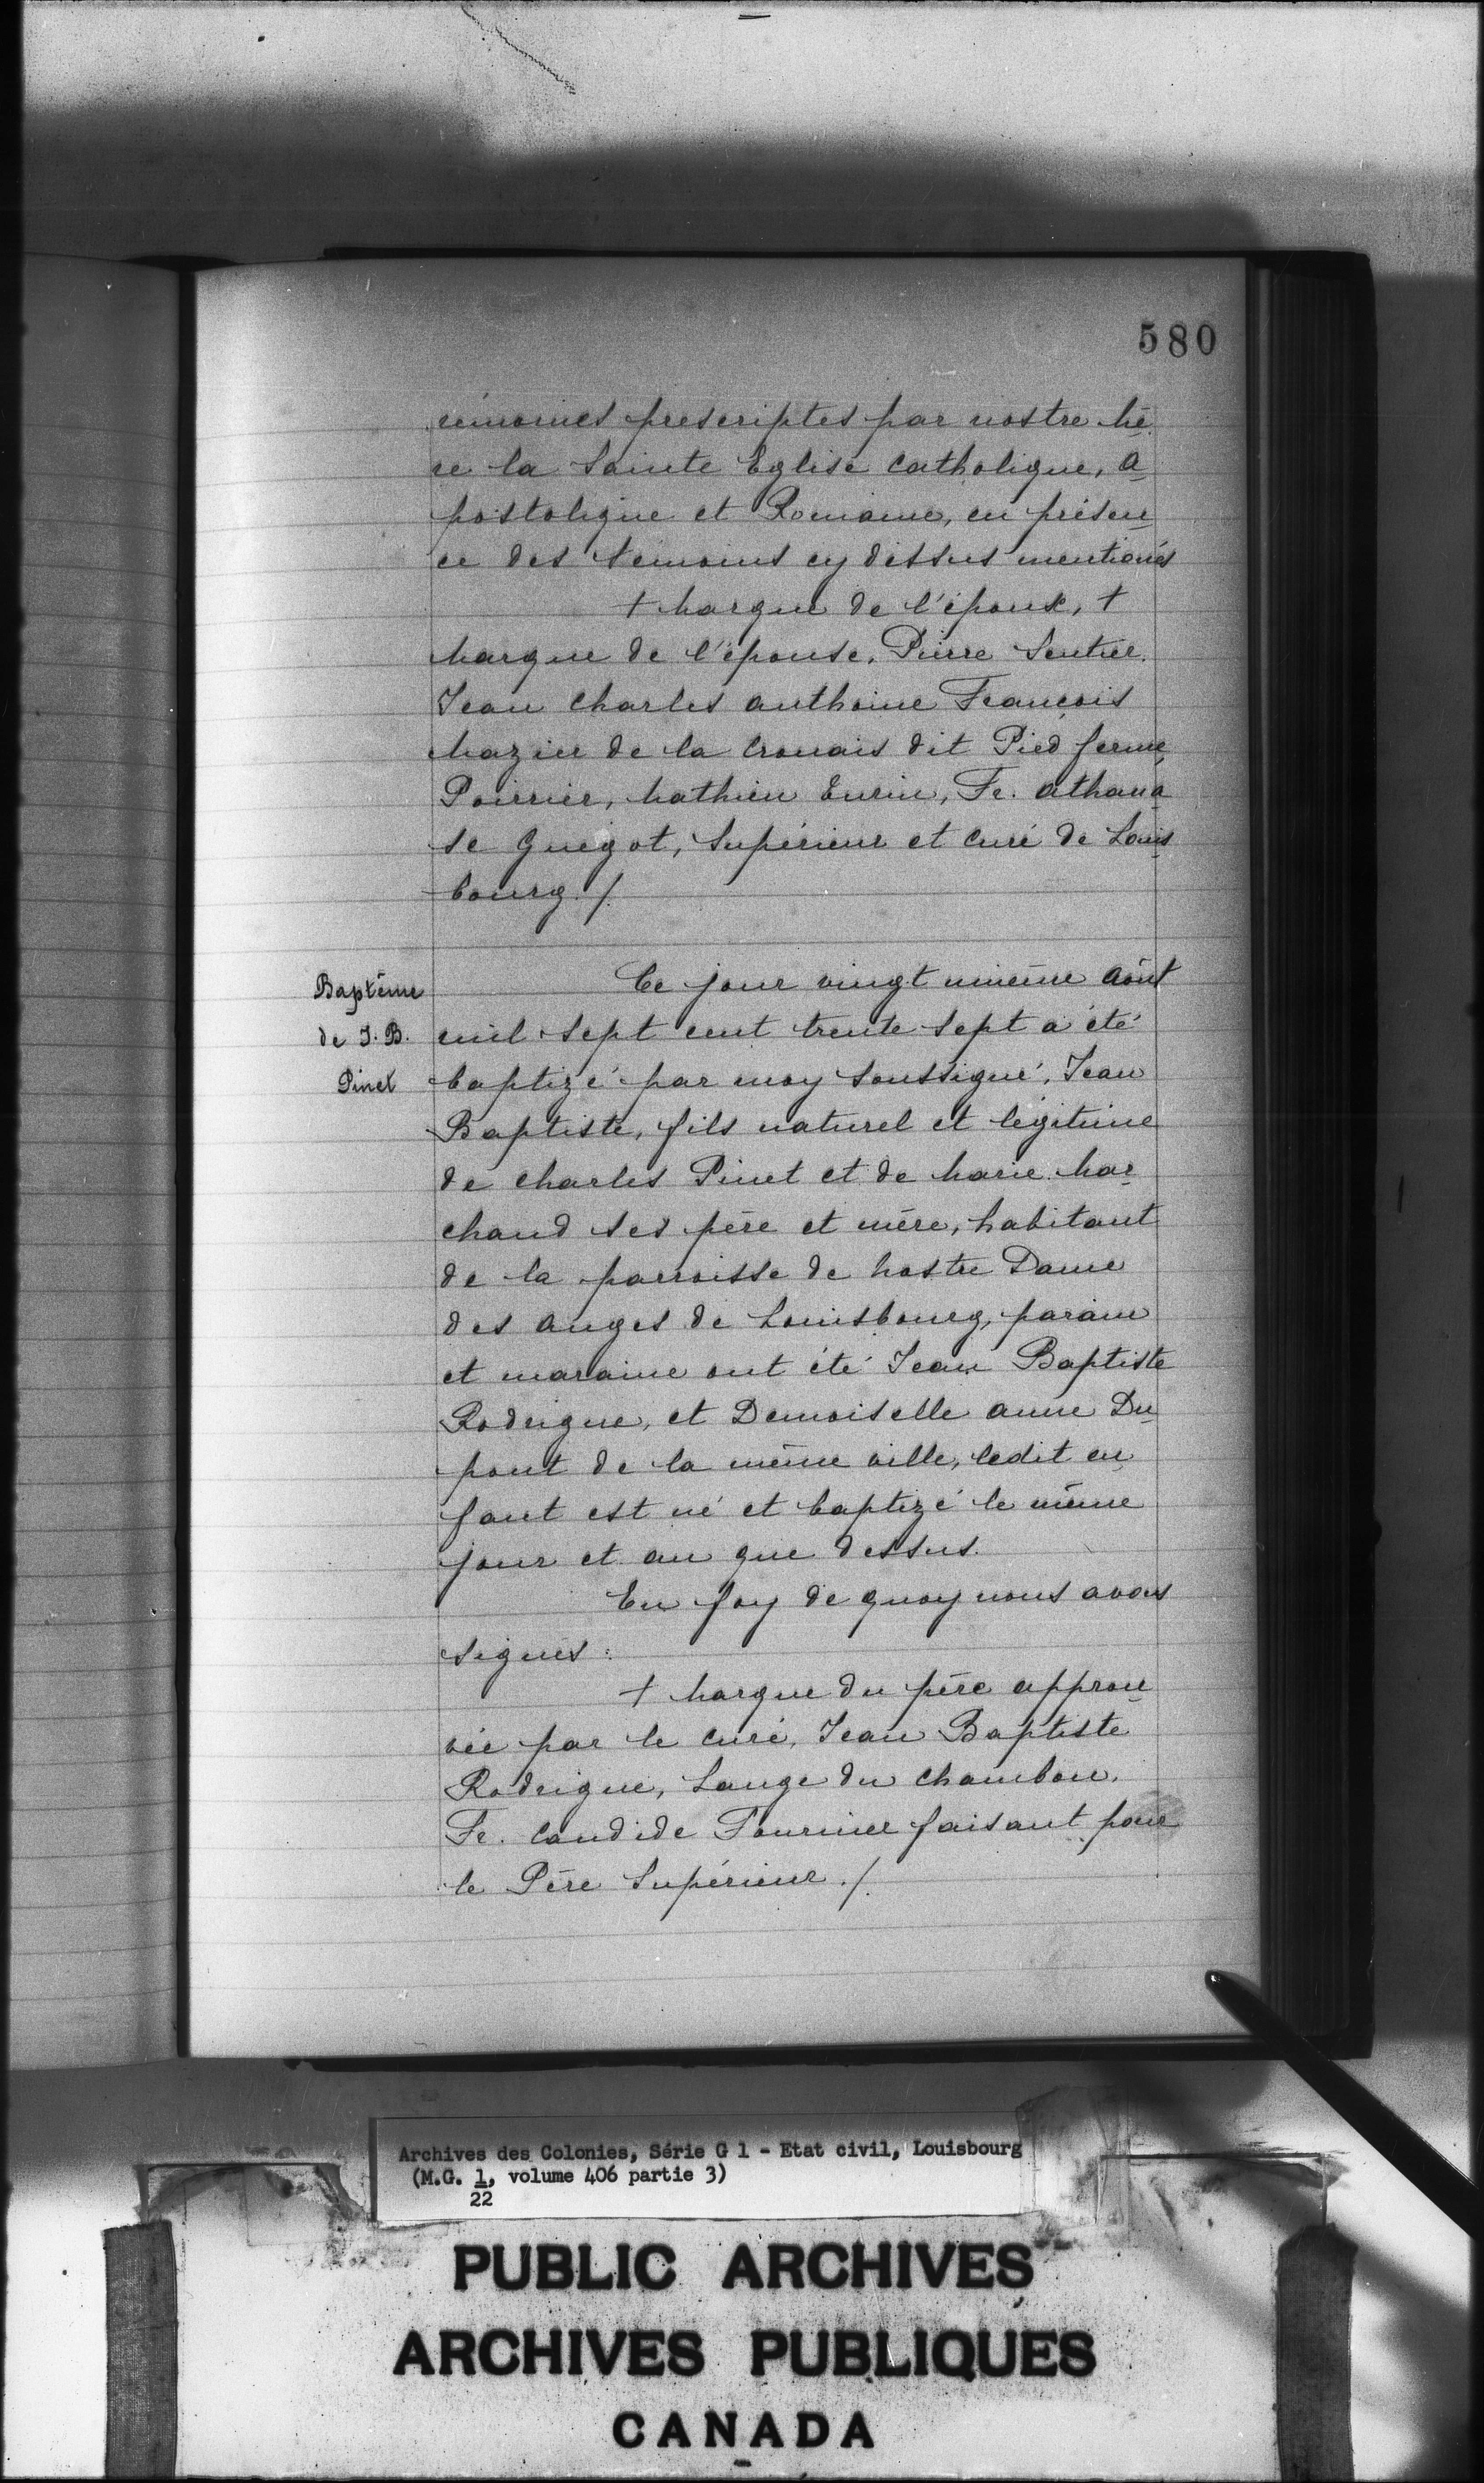 580
rémonies prescriptes par nostre Mè
re la Sainte Eglise Catholique, A
postolique et Romaine, en présen
ce des témoins cy dessus mentionés
+ Marque de l'époux, +
Marque de l'épouse, Pierre Sentier.
Jean Charles Anthoine François
Mazier de la Crouais dit Pied ferme,
Poirrier, Mathieu Eurin, Fr. Athana
se Guégot, Supérieur et Curé de Louis
bourg ./.
Baptême
de J. B.
Pinet
Ce jour vingt unième Août
mil sept cent trente sept a été
baptizé par moy soussigné, Jean
Baptiste, fils naturel et légitime
de Charles Pinet et de Marie Mar
chand ses père et mère, habitant
de la parroisse de Nostre Dame
des Anges de Louisbourg, parain
et maraine ont été Jean Baptiste
Rodrigue, et Demoiselle Anne Du
pont de la même ville, ledit en
fant est né et baptizé le même
jour et an que dessus.
En foy de quoy nous avons
signés :
+ Marque du père approu
vée par le Curé, Jean Baptiste
Rodrigue, Lange du Chambon,
Fr. Candide Fournier faisant pour
le Père Supérieur ./.
Archives des Colonies, Série G 1 - Etat civil, Louisbourg
(M.G. 1, volume 406 partie 3)
22
PUBLIC ARCHIVES
ARCHIVES PUBLIQUES
CANADA